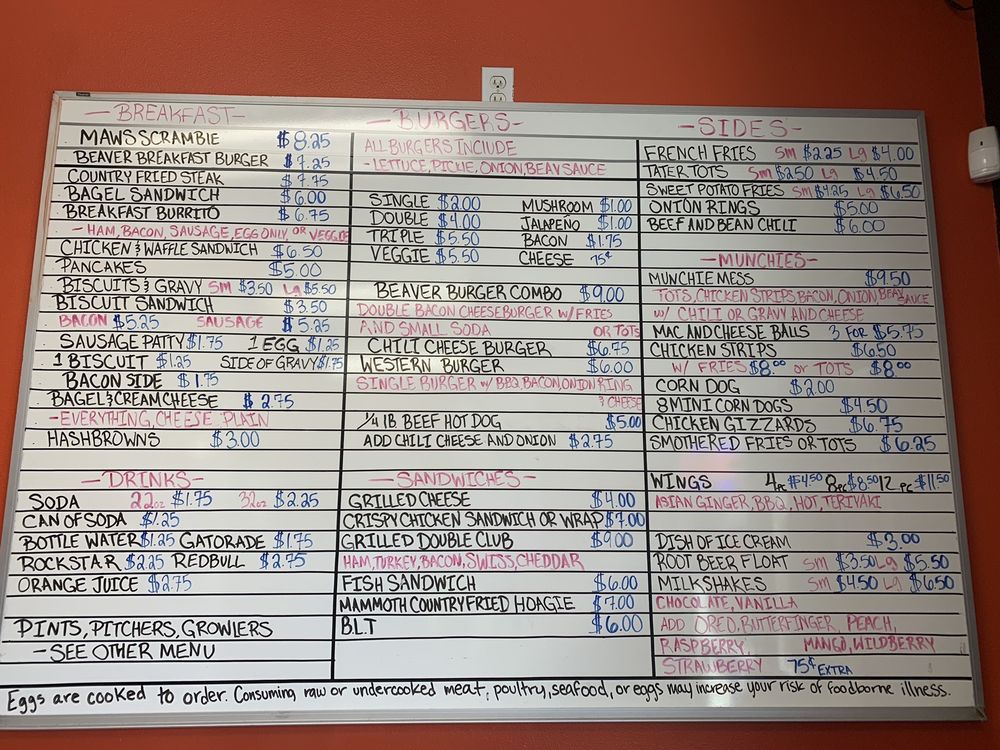 -BREAKFAST-
MAWS SCRAMBLE $8.25
BEAVER BREAKFAST BURGER $7.25
COUNTRY FRIED STEAK $7.75
BAGEL SANDWICH $6.00
BREAKFAST BURRITO $6.75
- HAM, BACON, SAUSAGE, EGG ONLY, OR VEGGIE
CHICKEN & WAFFLE SANDWICH $6.50
PANCAKES $5.00
BISCUITS & GRAVY Sm $3.50 Lg $5.50
BISCUIT SANDWICH $3.50
BACON $5.25 SAUSAGE $5.25
SAUSAGE PATTY $1.75 1 EGG $1.25
1 BISCUIT $1.25 SIDE OF GRAVY $1.75
BACON SIDE $1.75
BAGEL & CREAM CHEESE $2.75
-EVERYTHING, CHEESE, PLAIN
HASHBROWNS $3.00
-DRINKS-
SODA 22oz $1.75 32oz $2.25
CAN OF SODA $1.25
BOTTLE WATER $1.25 GATORADE $1.75
ROCKSTAR $2.25 REDBULL $2.75
ORANGE JUICE $2.75
PINTS, PITCHERS, GROWLERS
-SEE OTHER MENU
-BURGERS-
ALL BURGERS INCLUDE
-LETTUCE, PICKLE, ONION, BEAV SAUCE
SINGLE $2.00 MUSHROOM $1.00
DOUBLE $4.00 JALAPEÑO $1.00
TRIPLE $5.50 BACON $1.75
VEGGIE $5.50 CHEESE 75¢
BEAVER BURGER COMBO $9.00
DOUBLE BACON CHEESEBURGER w/ FRIES
AND SMALL SODA OR TOTS
CHILI CHEESE BURGER $6.75
WESTERN BURGER $6.00
SINGLE BURGER w/ BBQ, BACON, ONION RING
& CHEESE
1/4 lB BEEF HOT DOG $5.00
ADD CHILI CHEESE AND ONION $2.75
-SANDWICHES-
GRILLED CHEESE $4.00
CRISPY CHICKEN SANDWICH OR WRAP $7.00
GRILLED DOUBLE CLUB $9.00
HAM, TURKEY, BACON, SWISS, CHEDDAR
FISH SANDWICH $6.00
MAMMOTH COUNTRY FRIED HOAGIE $7.00
B.L.T $6.00
-SIDES-
FRENCH FRIES Sm $2.25 Lg $4.00
TATER TOTS Sm $2.50 Lg $4.50
SWEET POTATO FRIES Sm $4.25 Lg $6.50
ONION RINGS $5.00
BEEF AND BEAN CHILI $6.00
-MUNCHIES-
MUNCHIE MESS $9.50
TOTS, CHICKEN STRIPS, BACON, ONION, BEAV SAUCE
w/ CHILI OR GRAVY AND CHEESE
MAC AND CHEESE BALLS 3 FOR $5.75
CHICKEN STRIPS $6.50
w/ FRIES $8.00 or TOTS $8.00
CORN DOG $2.00
8 MINI CORN DOGS $4.50
CHICKEN GIZZARDS $6.75
SMOTHERED FRIES OR TOTS $6.25
WINGS 4pc $4.50 8pc $8.50 12 pc $11.50
ASIAN GINGER, BBQ, HOT, TERIYAKI
DISH OF ICE CREAM $3.00
ROOT BEER FLOAT Sm $3.50 Lg $5.50
MILKSHAKES Sm $4.50 Lg $6.50
CHOCOLATE, VANILLA
ADD OREO, BUTTERFINGER, PEACH,
RASPBERRY, MANGO, WILDBERRY
STRAWBERRY 75¢ EXTRA
Eggs are cooked to order. Consuming raw or undercooked meat, poultry, seafood, or eggs may increase your risk of foodborne illness.